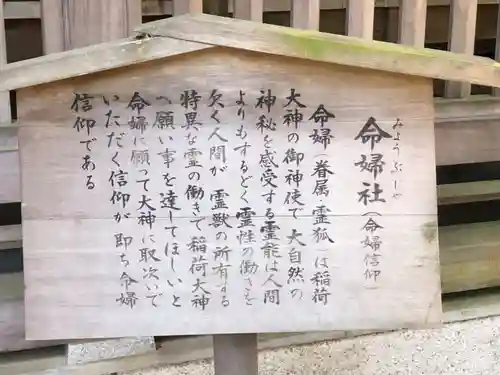 みようぶしや
命婦社（命婦信仰）
命婦（眷属・霊狐）は稲荷
大神の御神使で 大自然の
神秘を感受する霊能は人間
よりもするどく霊性の働きを
欠く人間が 霊獣の所有する
特異な霊の働きで 稲荷大神
へ願い事を達してほしいと
命婦に願って大神に取次いで
いただく信仰が 即ち命婦
信仰である